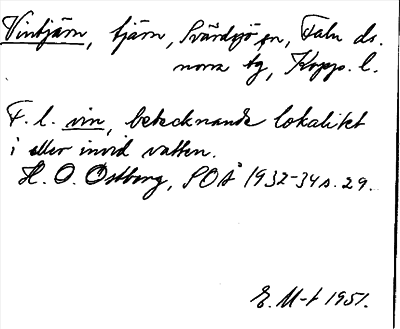 Vintjärn, tjärn, Svärdsjö sn, Falu ds.
norra tg, Kopp. l.
F. l. vin, betecknande lokalitet
i eller invid vatten.
H. O. Östberg, SOÅ 1932-34 s. 29.
E. M-t 1951.